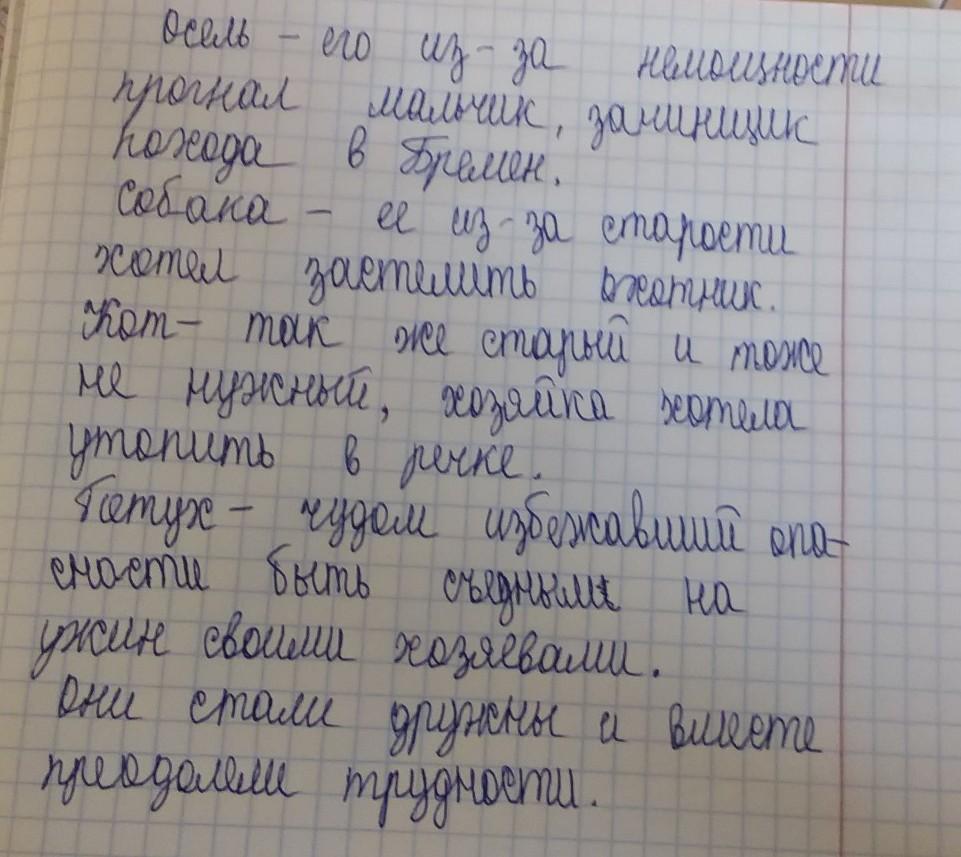 Осель - его из-за немощности
прогнал мальчик, зачинщик
похода в Бремен.
Собака - ее из-за старости
хотел застелить охотник.
Кот - так же старый и тоже
не нужный, хозяйка хотела
утопить в речке.
Петух - чудом избежавший опа-
сности быть съедным на
ужин своими хозяевами.
Они стали дружны и вместе
преодолели трудности.